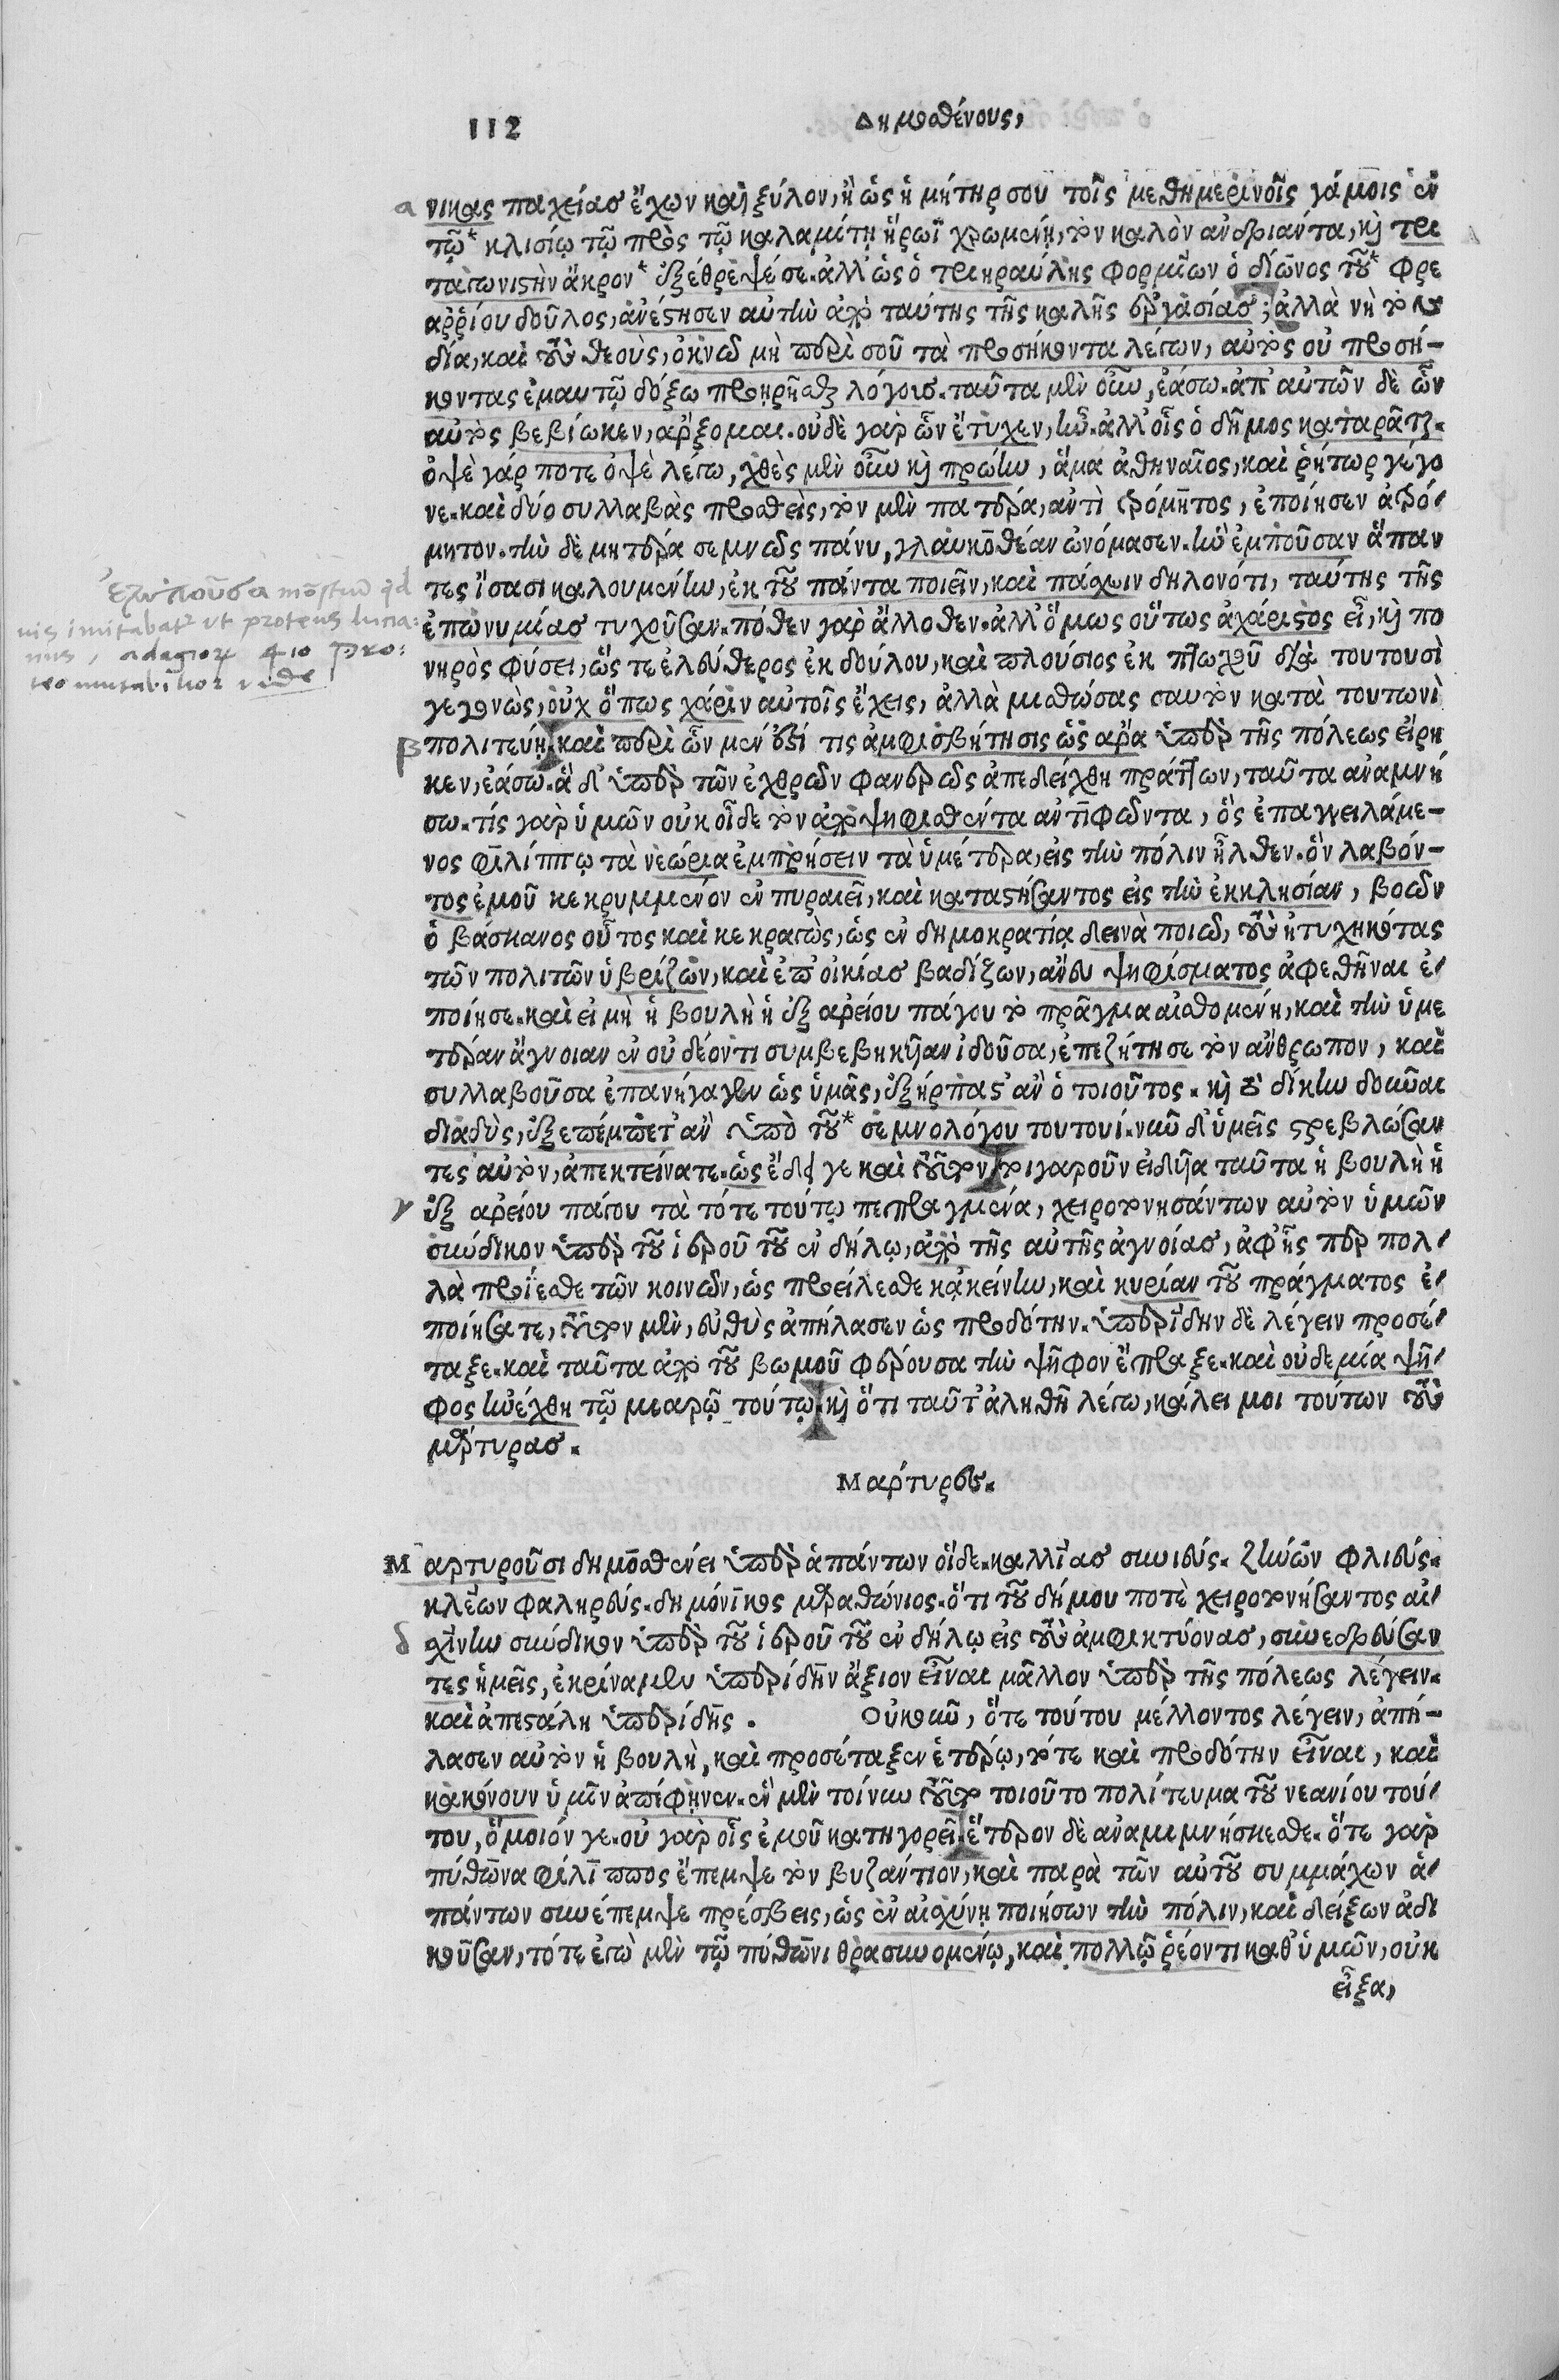 112
Δημοσθένους,
α νικας παχείας ἔχων καὶ ξύλον, ἢ ὡς ἡ μήτηρ σου τοῖς μεθημερινοῖς γάμοις ἐν
τῷ* κλισίῳ τῷ πρὸς τῷ καλαμίτῃ ἥρωϊ χρωμένη, τὸν καλὸν ἀνδριάντα, καὶ τρι
ταγωνιστὴν ἄκρον* ἐξέθρεψέ σε. ἀλλ' ὡς ὁ τριηραύλης Φορμίων ὁ δίωνος τοῦ* Φρε
αρρίου δοῦλος, ἀνέστησεν αὐτὴν ἀπὸ ταύτης τῆς καλῆς ἐργασίας; ἀλλὰ νὴ τὸν
δία, καὶ τοὺς θεοὺς, ὀκνῶ μὴ περὶ σοῦ τὰ προσήκοντα λέγων, αὐτὸς οὐ προσή-
κοντας ἐμαυτῷ δόξω προῃρῆσθαι λόγοις. ταῦτα μὲν οὖν, ἐάσω. ἀπ' αὐτῶν δὲ ὧν
αὐτὸς βεβίωκεν, ἄρξομαι. οὐδὲ γὰρ ὧν ἔτυχεν, ἦν. ἀλλ' οἷς ὁ δῆμος καταρᾶται.
ὀψὲ γάρ ποτε ὀψὲ λέγω, χθὲς μὲν οὖν καὶ πρώην, ἅμα ἀθηναῖος, καὶ ῥήτωρ γέγο
νε. καὶ δύο συλλαβὰς προσθεὶς, τὸν μὲν πατέρα, ἀντὶ τρόμητος, ἐποίησεν ἀτρό-
μητον. τὴν δὲ μητέρα σεμνῶς πάνυ, γλαυκοθέαν ὠνόμασεν. ἣν ἔμπουσαν ἅπαν
τες ἴσασι καλουμένην, ἐκ τοῦ πάντα ποιεῖν, καὶ πάσχειν δηλονότι, ταύτης τῆς
ἐπωνυμίας τυχοῦσαν. πόθεν γὰρ ἄλλοθεν. ἀλλ' ὅμως οὕτως ἀχάριστος εἶ, καὶ πο
νηρὸς φύσει, ὥς τε ἐλεύθερος ἐκ δούλου, καὶ πλούσιος ἐκ πτωχοῦ διὰ τουτουσὶ
γεγονὼς, οὐχ ὅπως χάριν αὐτοῖς ἔχεις, ἀλλὰ μισθώσας σαυτὸν κατὰ τουτωνὶ
β πολιτεύῃ. καὶ περὶ ὧν μὲν ἐστί τις ἀμφισβήτησις ὡς ἄρα ὑπὲρ τῆς πόλεως εἴρη
κεν, ἐάσω. ἃ δ' ὑπὲρ τῶν ἐχθρῶν φανερῶς ἀπεδείχθη πράττων, ταῦτα ἀναμνή
σω. τίς γὰρ ὑμῶν οὐκ οἶδε τὸν ἀποψηφισθέντα ἀντιφῶντα, ὃς ἐπαγγειλάμε-
νος φιλίππῳ τὰ νεώρια ἐμπρήσειν τὰ ὑμέτερα, εἰς τὴν πόλιν ἦλθεν. ὃν λαβόν-
τος ἐμοῦ κεκρυμμένον ἐν πυραιεῖ, καὶ καταστήσαντος εἰς τὴν ἐκκλησίαν, βοῶν
ὁ βάσκανος οὗτος καὶ κεκραγὼς, ὡς ἐν δημοκρατίᾳ δεινὰ ποιῶ, τοὺς ἠτυχηκότας
τῶν πολιτῶν ὑβρίζων, καὶ ἐπ' οἰκίας βαδίζων, ἄνευ ψηφίσματος ἀφεθῆναι ἐ-
ποίησε. καὶ εἰ μὴ ἡ βουλὴ ἡ ἐξ ἀρείου πάγου τὸ πρᾶγμα αἰσθομένη, καὶ τὴν ὑμε
τέραν ἄγνοιαν ἐν οὐ δέοντι συμβεβηκυῖαν ἰδοῦσα, ἐπεζήτησε τὸν ἄνθρωπον, καὶ
συλλαβοῦσα ἐπανήγαγεν ὡς ὑμᾶς, ἐξήρπαστ' ἂν ὁ τοιοῦτος. καὶ τὸ δίκην δοῦναι
διαδὺς, ἐξεπέμπετ' ἂν ὑπὸ τοῦ* σεμνολόγου τουτουί. νῦν δ' ὑμεῖς στρεβλώσαν
τες αὐτὸν, ἀπεκτείνατε. ὡς ἔδει γε καὶ τοῦτον. τοιγαροῦν εἰδυῖα ταῦτα ἡ βουλὴ ἡ
γ ἐξ ἀρείου πάγου τὰ τότε τούτῳ πεπραγμένα, χειροτονησάντων αὐτὸν ὑμῶν
σύνδικον ὑπὲρ τοῦ ἱεροῦ τοῦ ἐν δήλῳ, ἀπὸ τῆς αὐτῆς ἀγνοίας, ἀφ' ἧς περ πολ-
λὰ προΐεσθε τῶν κοινῶν, ὡς προείλεσθε κἀκείνην, καὶ κυρίαν τοῦ πράγματος ἐ-
ποιήσατε, τοῦτον μὲν, εὐθὺς ἀπήλασεν ὡς προδότην. ὑπερίδην δὲ λέγειν προσέ-
ταξε. καὶ ταῦτα ἀπὸ τοῦ βωμοῦ φέρουσα τὴν ψῆφον ἔπραξε. καὶ οὐδεμία ψῆ-
φος ἠνέχθη τῷ μιαρῷ τούτῳ. καὶ ὅτι ταῦτ' ἀληθῆ λέγω, κάλει μοι τούτων τοὺς
μάρτυρας.
Μάρτυρες.
Μαρτυροῦσι δημοσθένει ὑπὲρ ἁπάντων οἵδε. καλλίας σουνιεύς. ζήνων φλιεύς.
κλέων φαληρεύς. δημόνικος μαραθώνιος. ὅτι τοῦ δήμου ποτὲ χειροτονήσαντος αἰ-
δ σχίνην σύνδικον ὑπὲρ τοῦ ἱεροῦ τοῦ ἐν δήλῳ εἰς τοὺς ἀμφικτύονας, συνεδρεύσαν
τες ἡμεῖς, ἐκρίναμεν ὑπερίδην ἄξιον εἶναι μᾶλλον ὑπὲρ τῆς πόλεως λέγειν.
καὶ ἀπεστάλη ὑπερίδης. Οὐκοῦν, ὅτε τούτου μέλλοντος λέγειν, ἀπή-
λασεν αὐτὸν ἡ βουλὴ, καὶ προσέταξεν ἑτέρῳ, τότε καὶ προδότην εἶναι, καὶ
κακόνουν ὑμῖν ἀπέφηνεν. ἓν μὲν τοίνυν τοῦτο τοιοῦτο πολίτευμα τοῦ νεανίου τού-
του, ὅμοιόν γε. οὐ γὰρ οἷς ἐμοῦ κατηγορεῖ. ἕτερον δὲ ἀναμιμνήσκεσθε. ὅτε γὰρ
πύθωνα φίλιππος ἔπεμψε τὸν βυζάντιον, καὶ παρὰ τῶν αὐτοῦ συμμάχων ἁ-
πάντων συνέπεμψε πρέσβεις, ὡς ἐν αἰσχύνῃ ποιήσων τὴν πόλιν, καὶ δείξων ἀδι
κοῦσαν, τότε ἐγὼ μὲν τῷ πύθωνι θρασυνομένῳ, καὶ πολλῷ ῥέοντι καθ' ὑμῶν, οὐκ
εἶξα,
ἔμποῦσα mõstrũ qd
nis imitabatr ut proteus lucia=
nus, adagiorꝝ 410 Pro=
teo mutabilior vide